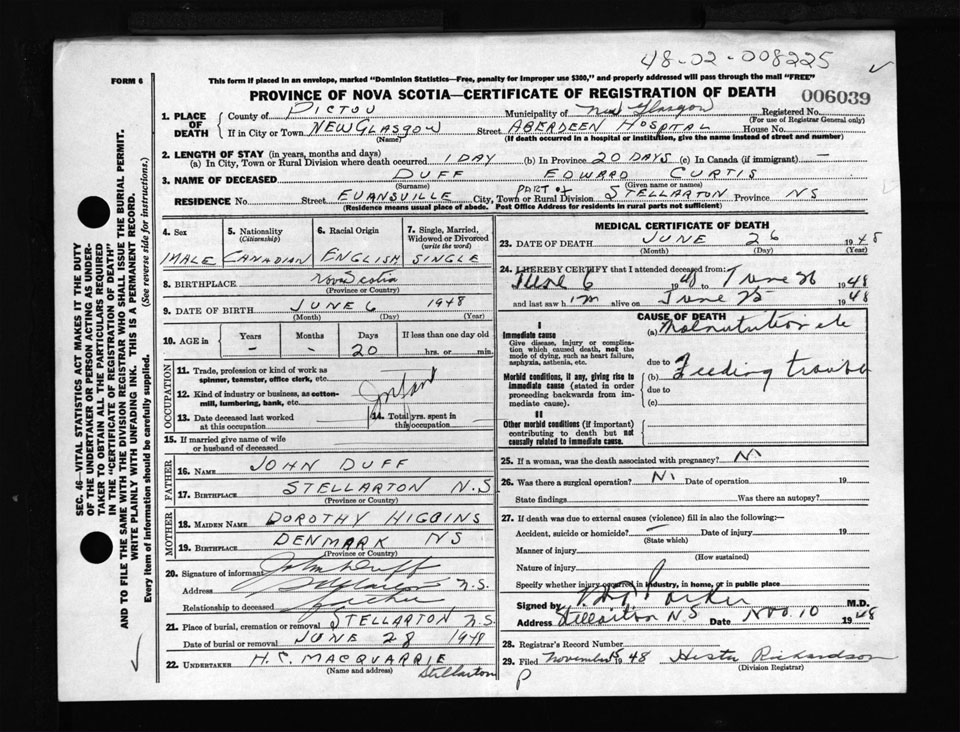 48-02-008225
FORM 6
This form if placed in an envelope, marked "Dominion Statistics—Free, penalty for improper use $300," and properly addressed will pass through the mail "FREE"
PROVINCE OF NOVA SCOTIA—CERTIFICATE OF REGISTRATION OF DEATH
006039
SEC. 46—VITAL STATISTICS ACT MAKES IT THE DUTY
OF THE UNDERTAKER OR PERSON ACTING AS UNDER-
TAKER TO OBTAIN ALL THE PARTICULARS REQUIRED
IN THE "CERTIFICATE OF REGISTRATION OF DEATH"
AND TO FILE THE SAME WITH THE DIVISION REGISTRAR WHO SHALL ISSUE THE BURIAL PERMIT.
WRITE PLAINLY WITH UNFADING INK. THIS IS A PERMANENT RECORD.
Every item of information should be carefully supplied. (See reverse side for instructions.)
1. PLACE OF DEATH
County of PICTOU Municipality of New Glasgow Registered No.
(For use of Registrar General only)
If in City or Town NEW GLASGOW Street ABERDEEN HOSPITAL House No.
(Name) (If death occurred in a hospital or institution, give the name instead of street and number)
2. LENGTH OF STAY (in years, months and days)
(a) In City, Town or Rural Division where death occurred 1 DAY (b) In Province 20 DAYS (c) In Canada (if immigrant) —
3. NAME OF DECEASED DUFF EDWARD CURTIS
(Surname) (Given name or names)
RESIDENCE No. Street EVANSVILLE City, Town or Rural Division PART OF STELLARTON Province NS
(Residence means usual place of abode. Post Office Address for residents in rural parts not sufficient)
4. Sex
MALE
5. Nationality
(Citizenship)
CANADIAN
6. Racial Origin
ENGLISH
7. Single, Married,
Widowed or Divorced
(write the word)
SINGLE
8. BIRTHPLACE Nova Scotia
(Province or Country)
9. DATE OF BIRTH JUNE 6 1948
(Month) (Day) (Year)
10. AGE in
Years Months Days If less than one day old
- - 20 hrs. or min.
OCCUPATION
11. Trade, profession or kind of work as
spinner, teamster, office clerk, etc.
12. Kind of industry or business, as cotton-
mill, lumbering, bank, etc. Infant
13. Date deceased last worked
at this occupation
14. Total yrs. spent in
this occupation
15. If married give name of wife
or husband of deceased
FATHER
16. NAME JOHN DUFF
17. BIRTHPLACE STELLARTON N.S
(Province or Country)
MOTHER
18. MAIDEN NAME DOROTHY HIGGINS
19. BIRTHPLACE DENMARK NS
(Province or Country)
20. Signature of informant John Duff
Address N.S.
Relationship to deceased
21. Place of burial, cremation or removal STELLARTON N.S
Date of burial or removal JUNE 28 1948
22. UNDERTAKER H.C. MACQUARRIE
(Name and address) Stellarton
MEDICAL CERTIFICATE OF DEATH
23. DATE OF DEATH JUNE 26 1948
(Month) (Day) (Year)
24. I HEREBY CERTIFY that I attended deceased from:
June 6 48 to June 26 1948
and last saw him alive on June 25 1948
CAUSE OF DEATH
I
Immediate cause
Give disease, injury or complica-
tion which caused death, not the
mode of dying, such as heart failure,
asphyxia, asthenia, etc.
(a) Malnutrition etc
due to
Morbid conditions, if any, giving rise to
immediate cause (stated in order
proceeding backwards from im-
mediate cause).
(b) Feeding trouble
due to
(c)
II
Other morbid conditions (if important)
contributing to death but not
causally related to immediate cause.
25. If a woman, was the death associated with pregnancy?
26. Was there a surgical operation? Date of operation 19
State findings Was there an autopsy?
27. If death was due to external causes (violence) fill in also the following:—
Accident, suicide or homicide? — Date of injury 19
(State which)
Manner of injury
(How sustained)
Nature of injury
Specify whether injury occurred in industry, in home, or in public place
Signed by Parker M.D.
Address Stellarton N.S Date Nov. 10 1948
28. Registrar's Record Number
29. Filed November 1948 Richardson
(Division Registrar)